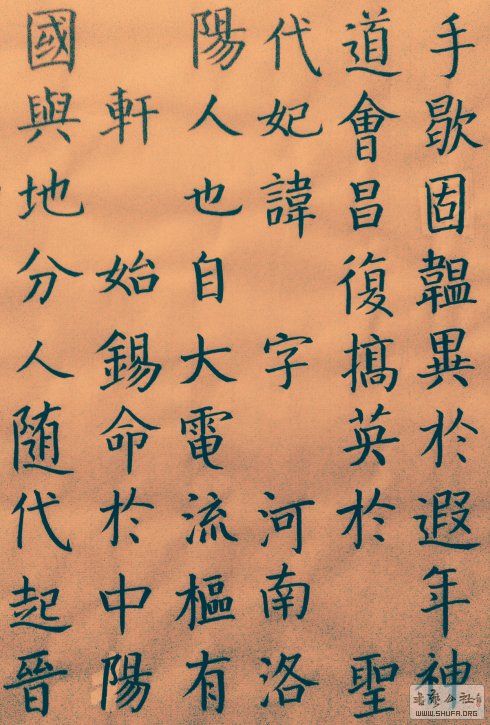 手歇固韞異於遐年神
道會昌復搞英於 聖
代妃諱 字 河南洛
陽人也自大電流樞有
軒 始錫命於中陽
國與地分人随代起晉
書法公社
WWW.SHUFA.ORG